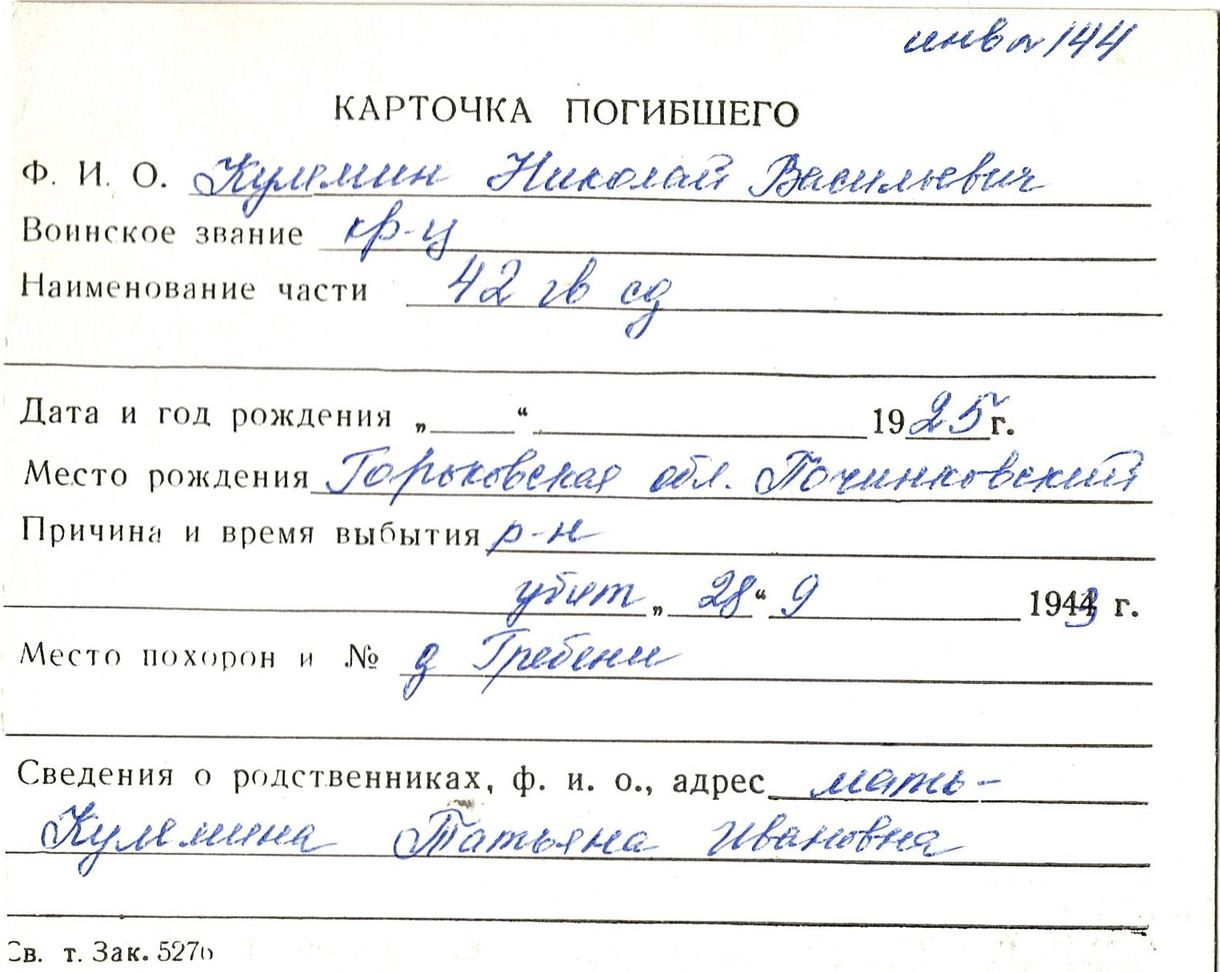 инв № 144
КАРТОЧКА ПОГИБШЕГО
Ф. И. О. Кулемин Николай Васильевич
Воинское звание кр-ц
Наименование части 42 гв сд
Дата и год рождения „ “ 1925 г.
Место рождения Горьковская обл. Починковский
Причина и время выбытия р-н
убит „ 28 “ 9 1943 г.
Место похорон и № д Гребени
Сведения о родственниках, ф. и. о., адрес мать-
Кулемина Татьяна Ивановна
Св. т. Зак. 5276